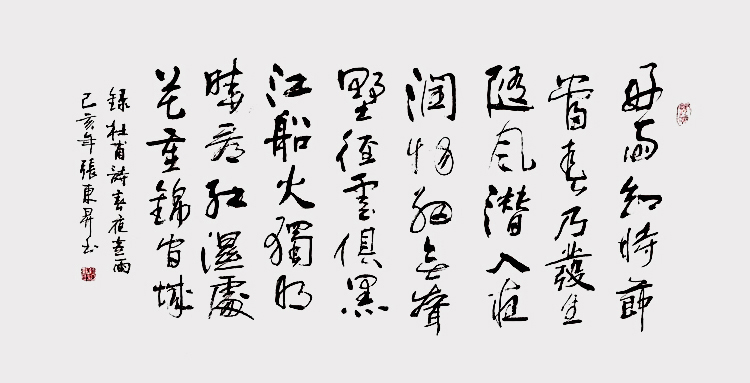 好雨知時節
當春乃發生
隨風潛入夜
潤物細無聲
野徑雲俱黑
江船火獨明
曉看紅濕處
花重錦官城
錄杜甫詩春夜喜雨
己亥年張東昇书